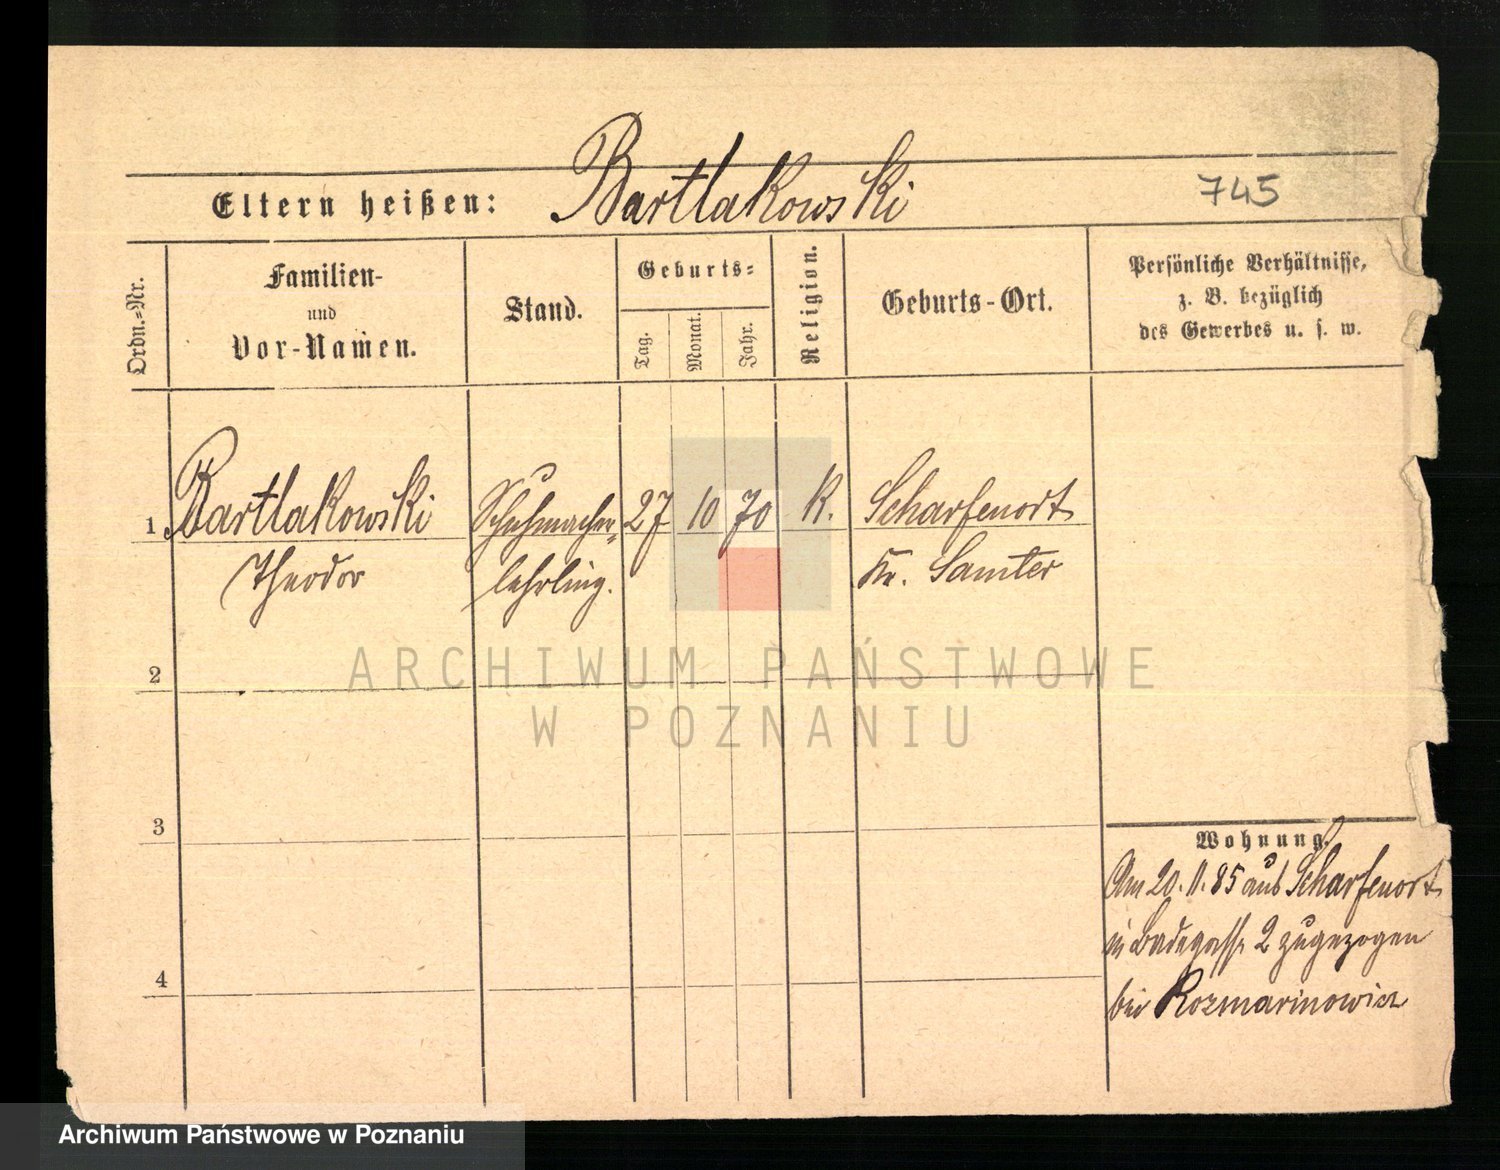 Eltern heißen: Bartlakowski 745
Ordn.-Nr.
Familien-
und
Vor-Namen.
Stand.
Geburts-
Tag.
Monat.
Jahr.
Religion.
Geburts-Ort.
Persönliche Verhältnisse,
z. B. bezüglich
des Gewerbes u. s. w.
1 Bartlakowski Schuhmacher- 27 10 70 K. Scharfenort
Theodor lehrling. Kr. Samter
2
3
4
Wohnung.
Am 20. 11. 85 aus Scharfenort
in Badegasse 2 zugezogen
bei Rozmarinowicz
ARCHIWUM PAŃSTWOWE
W POZNANIU
Archiwum Państwowe w Poznaniu